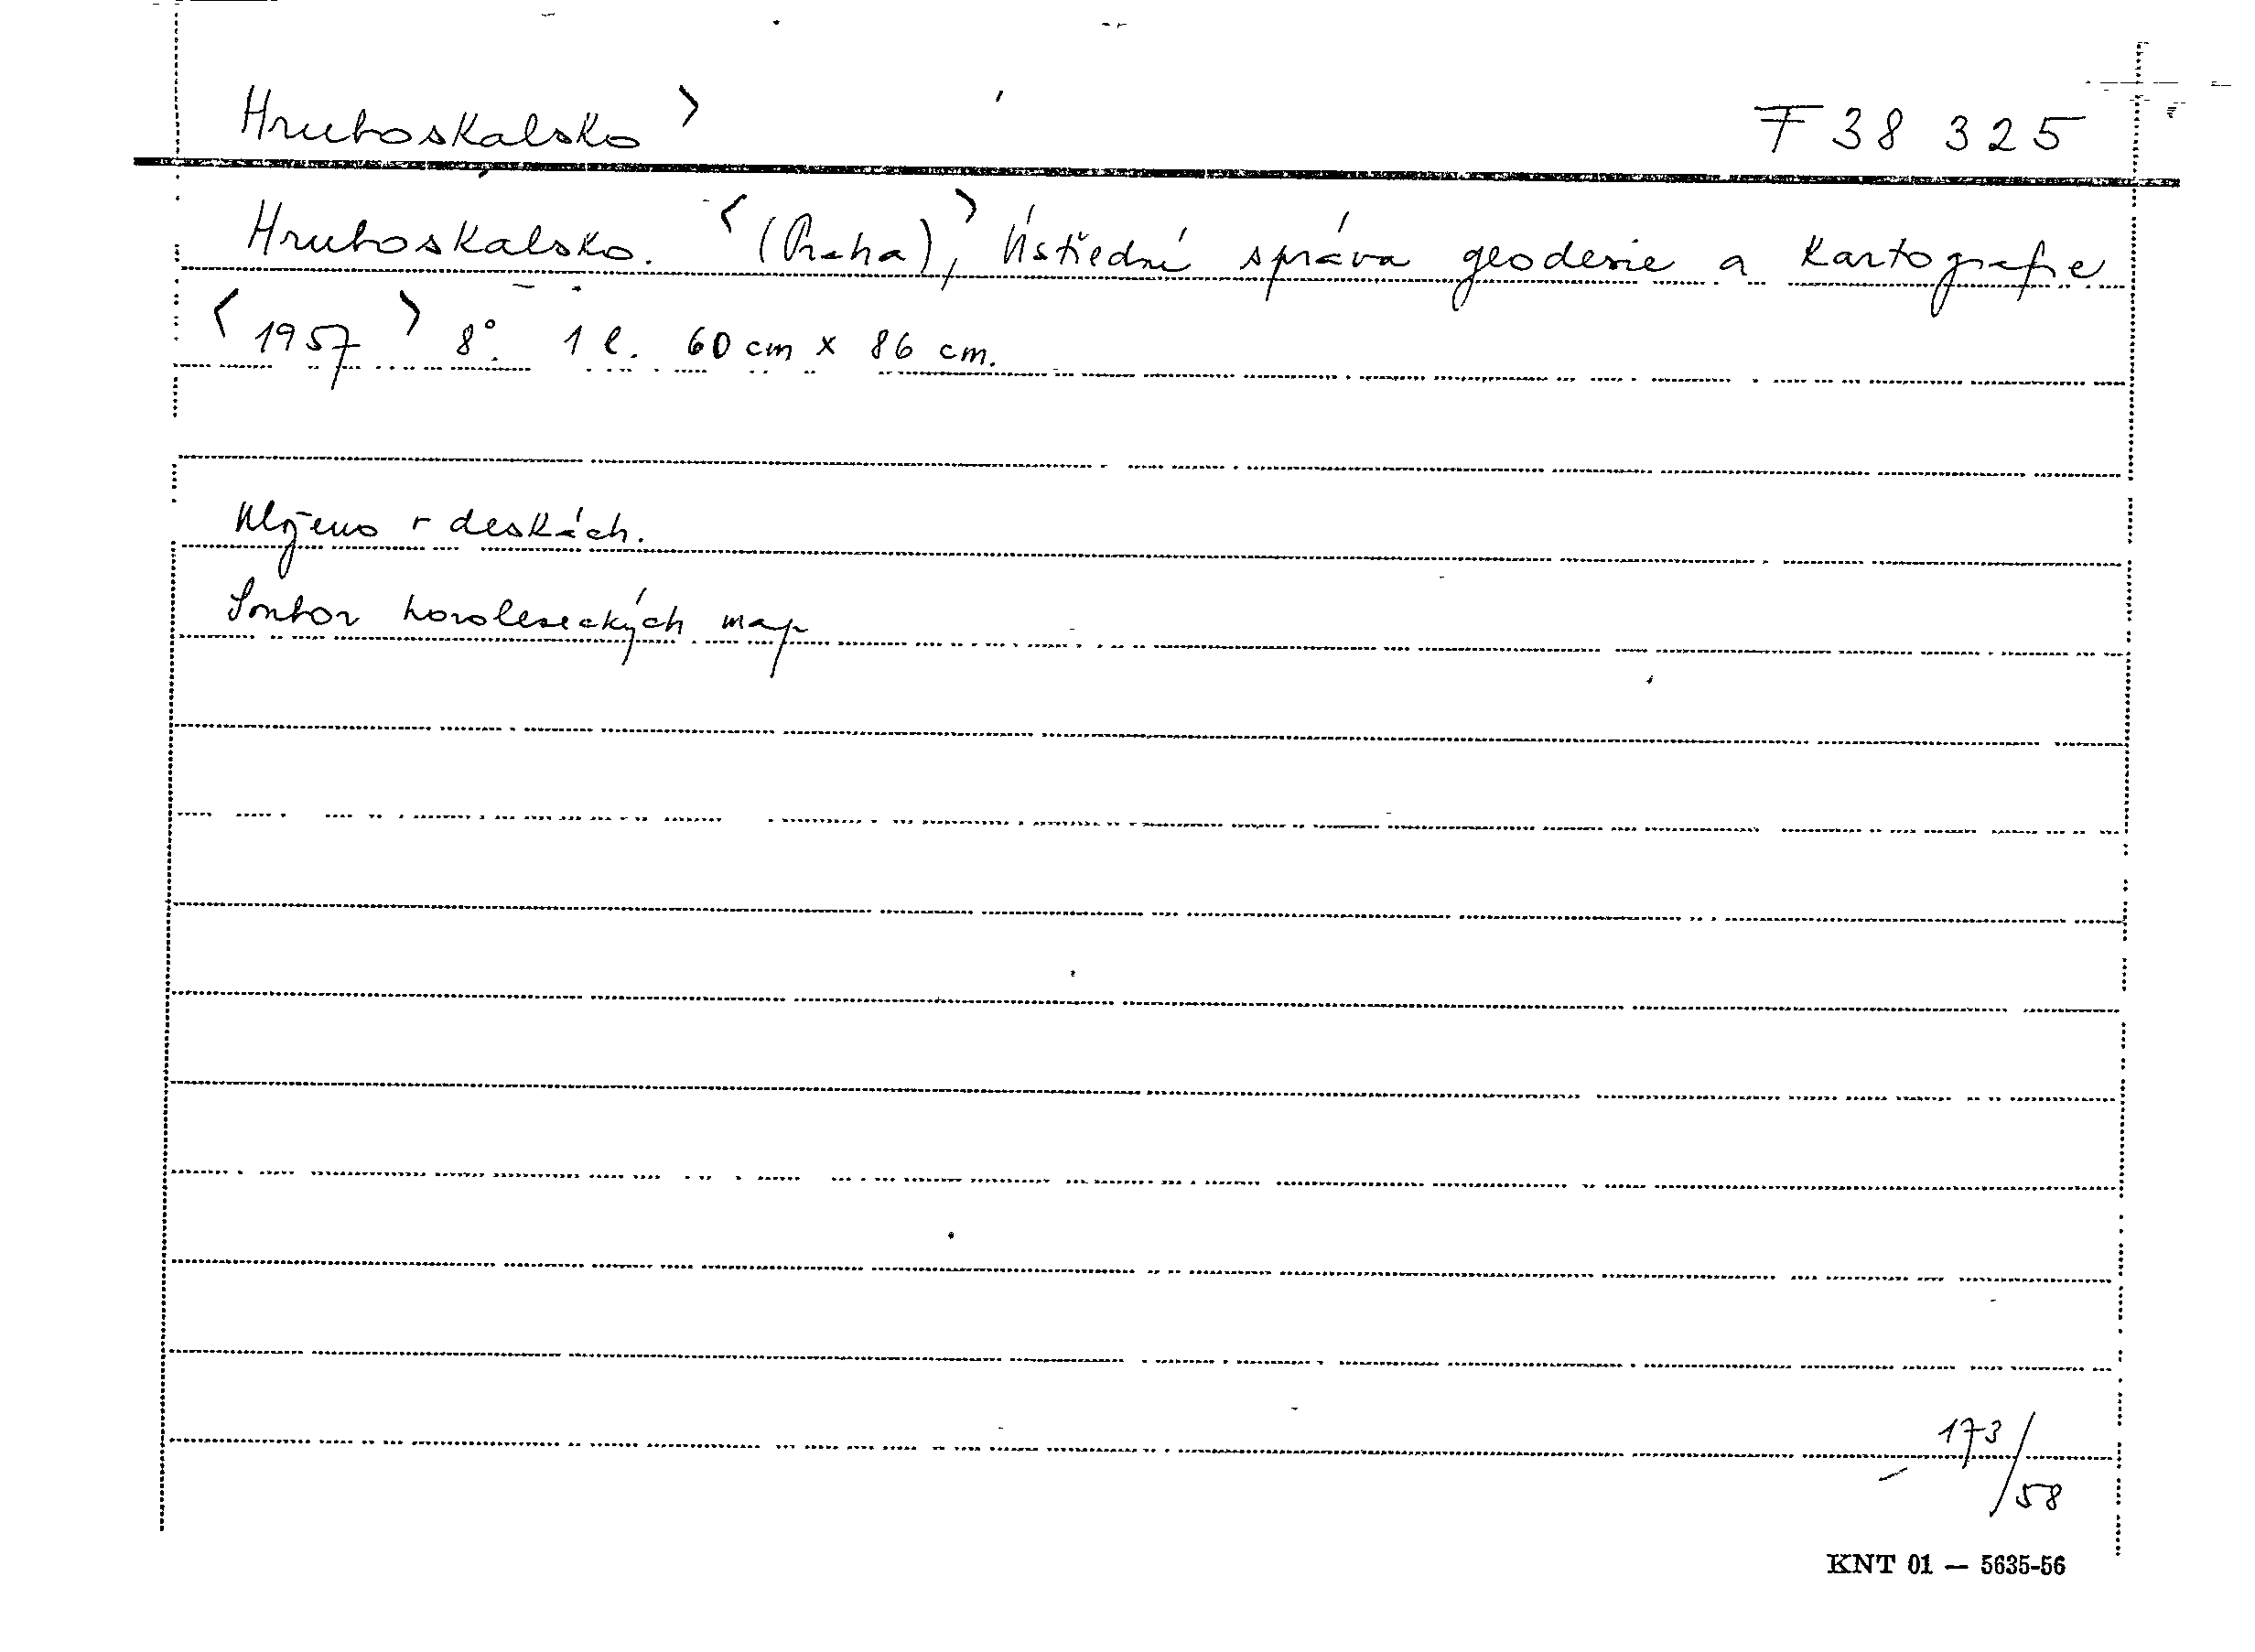 Hruboskalsko > F 38 325
Hruboskalsko. <(Praha),> Ústřední správa geodesie a kartografie
<1957> 8°. 1 l. 60 cm x 86 cm.
Uloženo v deskách.
Soubor horolezeckých map
173/58
KNT 01 — 5635-56